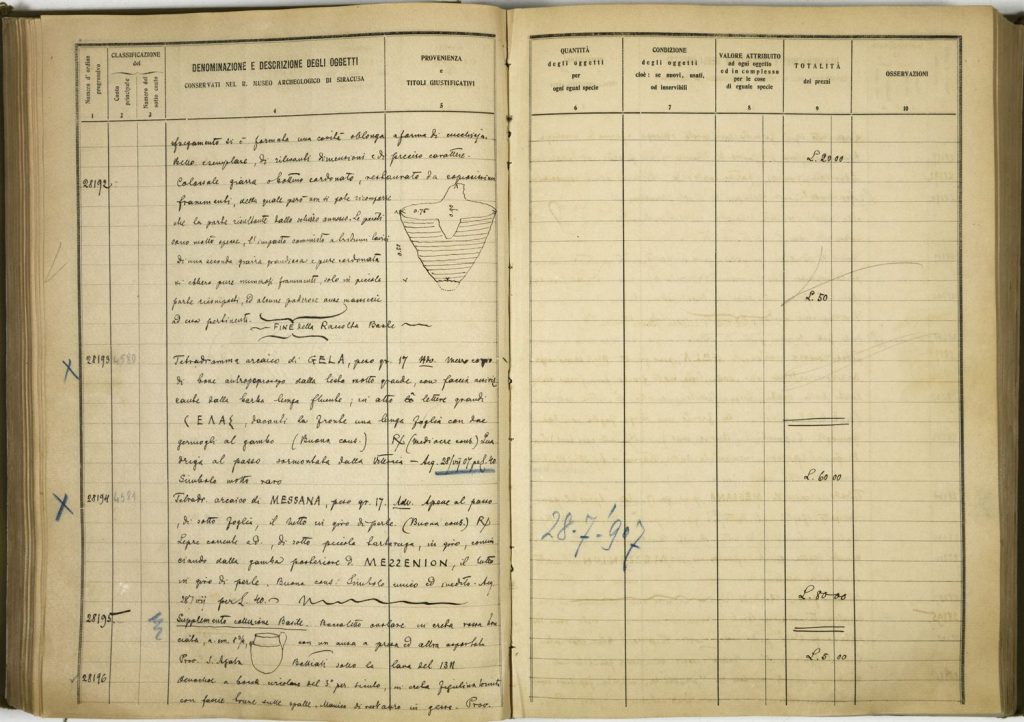 Numero d'ordine progressivo
CLASSIFICAZIONE
del
Conto principale
Numero del sotto conto
DENOMINAZIONE E DESCRIZIONE DEGLI OGGETTI
CONSERVATI NEL R. MUSEO ARCHEOLOGICO DI SIRACUSA
PROVENIENZA
e
TITOLI GIUSTIFICATIVI
1 2 3 4 5
si è formata una cavità oblonga a forma di
Bello esemplare, di rilevanti dimensioni e di preciso carattere.
28192 Colossale giarra o bottino cordonato, restaurato da
frammenti, della quale però non si potè ricomporre
che la parte risultante dallo schizzo annesso. Le pareti
sono molto spesse, l'impasto commisto a
di una seconda giarra grandiosa e pure cordonata
si ebbero pure numerosi frammenti, solo in piccola
parte ricomposti, ed alcune poderose anse massiccie
ad essa pertinenti.
0.75
FINE della Raccolta Basile
28193 4580 Tetradramma arcaico di GELA, peso gr. 17 Adv. Mezzo corpo
di bove antropoprosopo dalla testa molto grande, con faccia
dalla barba lunga fluente; in alto lettere grandi
davanti la fronte una lunga foglia con due
germogli al gambo (Buona cons.) R/ (mediocre cons.) Qua
driga al passo sormontata dalla Vittoria — Acq. 28/VII 07 per L. 40
Simbolo molto raro
28194 4581 Tetradr. arcaico di MESSANA, peso gr. 17. Adv. Apene al passo
, di sotto foglia, il tutto in giro di perle (Buona cons.) R/
Lepre corrente a d., di sotto piccola tartaruga, in giro, comin
ciando dalla gamba posteriore d. MEZZENION, il tutto
in giro di perle. Buona cons. Simbolo unico ed inedito. Acq.
28/VII per L. 40.
28195 Supplemento collezione Basile. Boccaletto ovolare in creta rossa
con un ansa a presa ed altra asportata
Prov. S. Agata Battiati sotto la lava del
28196 Oenochoe a bocca del 3° per. siculo, in creta figulina
con fascie brune sulle spalle. Manico di restauro in gesso. Prov.
QUANTITÀ
degli oggetti
per
ogni egual specie
6
CONDIZIONE
degli oggetti
cioè: se nuovi, usati,
od inservibili
7
VALORE ATTRIBUITO
ad ogni oggetto
ed in complesso
per le cose
di eguale specie
8
TOTALITÀ
dei prezzi
9
OSSERVAZIONI
10
L. 20 00
L. 50
L. 60 00
28-7-907
L. 80 00
L. 5 00